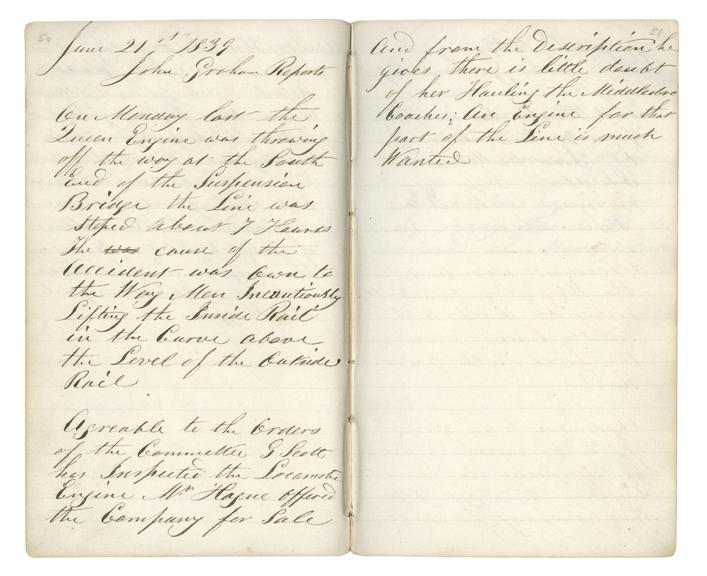 50
June 21st 1839
John Graham Reports
On Monday last the
Queen Engine was throwing
off the way at the South
End of the Suspension
Bridge the Line was
Stoped about 7 Hours
The was cause of the
Accident was own to
the Way Men Incautiously
Lifting the Inside Rail
in the Curve above
the Level of the Outside
Rail
Agreable to the Orders
of the Committee G Scott
has Inspected the Locomotive
Engine Mr Hague offered
the Company for Sale
51
and from the Description he
gives there is little doubt
of her Hauling the Middlesbro
Coaches; An Engine for that
part of the Line is much
Wanted